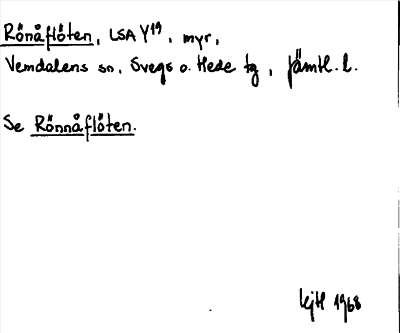 Rönåflöten, LSA Y¹⁹, myr,
Vemdalens sn, Svegs o. Hede tg, Jämtl. l.
Se Rönnåflöten.
1968